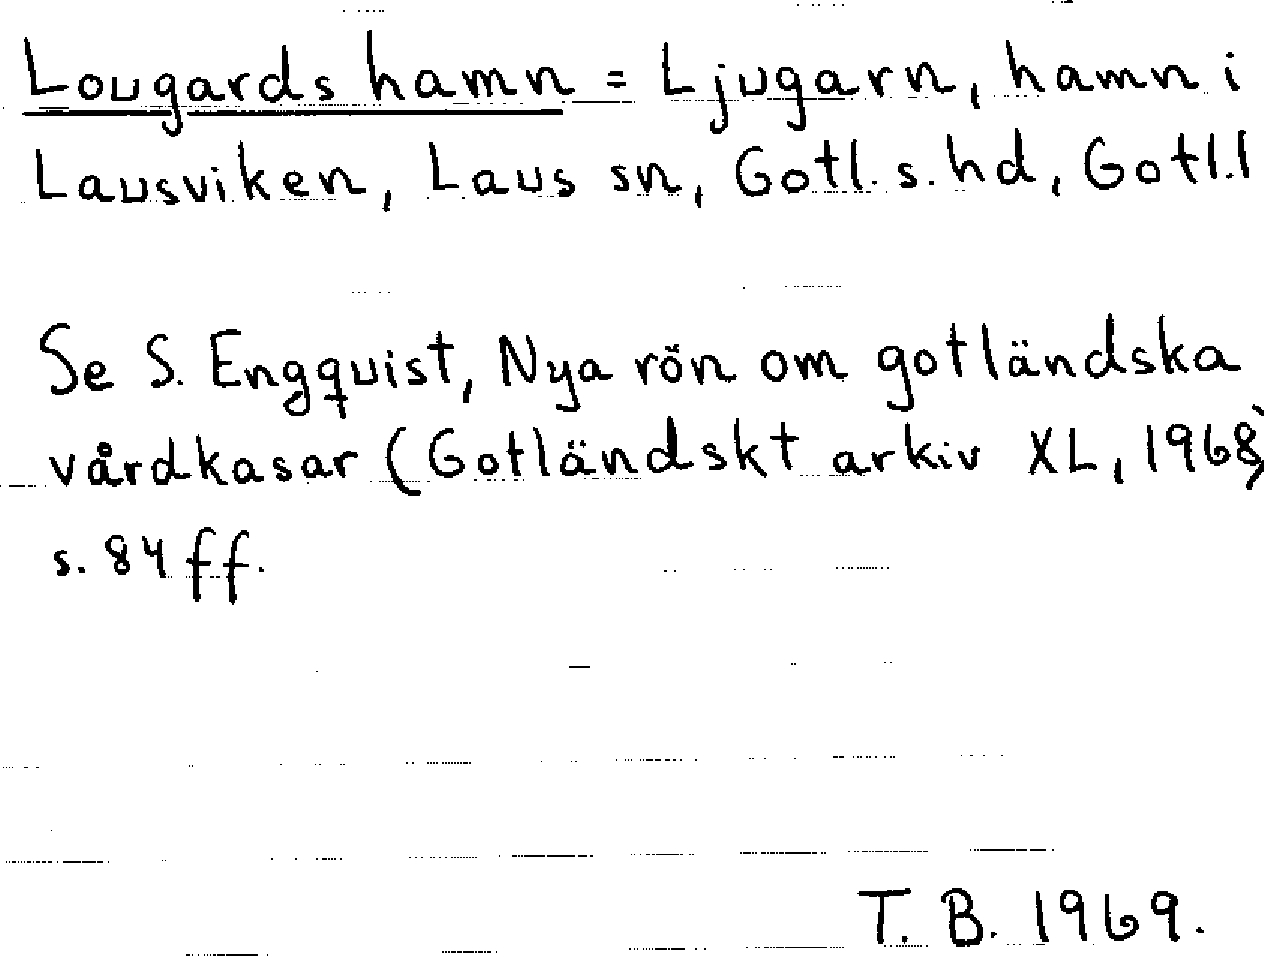 Lougards hamn = Ljugarn, hamn i
Lausviken, Laus sn, Gotl. s. hd, Gotl.l
Se S. Engquist, Nya rön om gotländska
vårdkasar (Gotländskt arkiv XL, 1968),
s. 84 ff.
T. B. 1969.